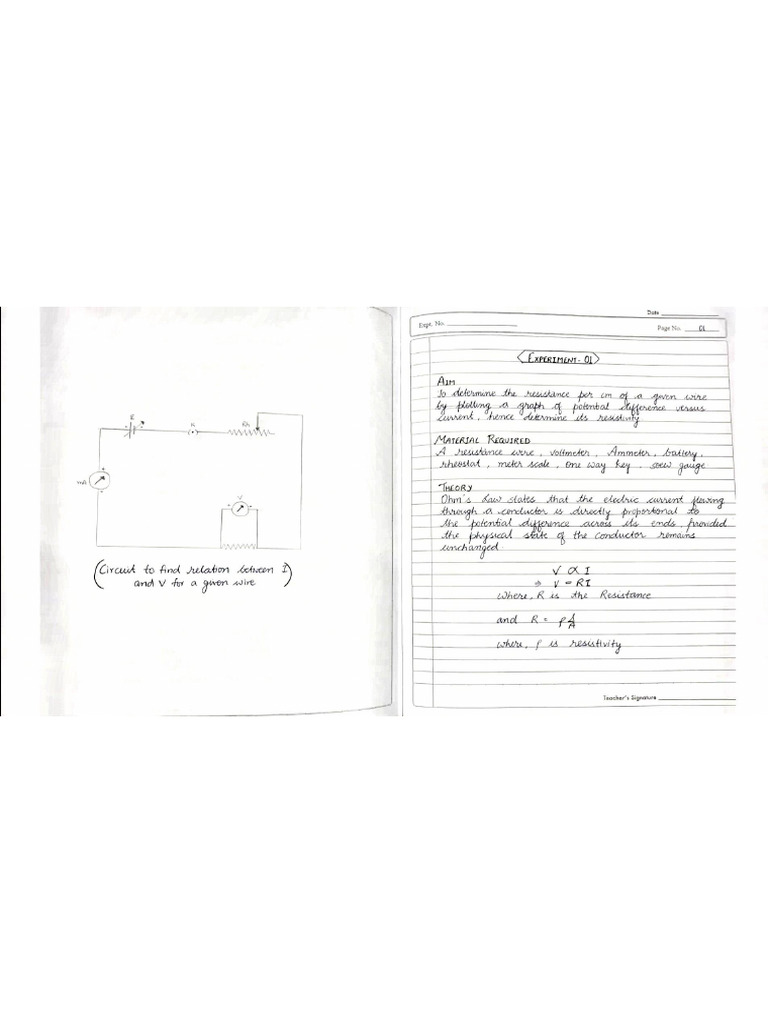 E
K
Rh
mA
V
(Circuit to find relation between I
and V for a given wire)
Date
Expt. No.
Page No. 01
EXPERIMENT-01
AIM
To determine the resistance per cm of a given wire
by plotting a graph of potential difference versus
current, hence determine its resistivity
MATERIAL REQUIRED
A resistance wire, voltmeter, Ammeter, battery,
rheostat, meter scale, one way key, screw gauge
THEORY
Ohm's Law states that the electric current flowing
through a conductor is directly proportional to
the potential difference across its ends, provided
the physical state of the conductor remains
unchanged
V ∝ I
⇒ V = RI
where, R is the Resistance
and R = ρ l/A
where, ρ is resistivity
Teacher's Signature